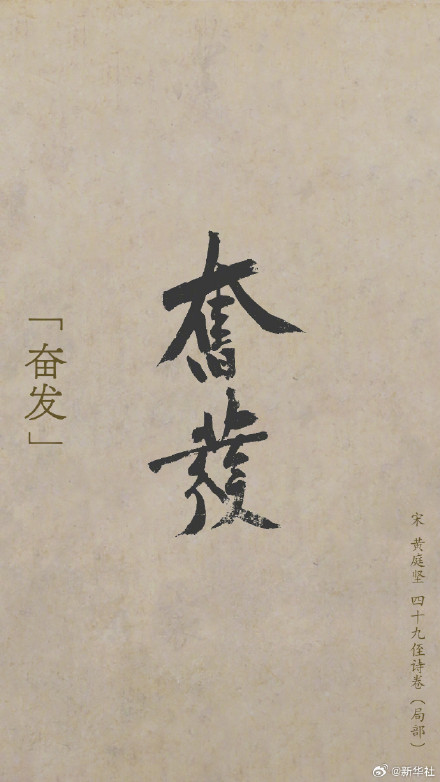 奮發
「奋发」
宋 黄庭坚 四十九侄诗卷(局部)
@新华社